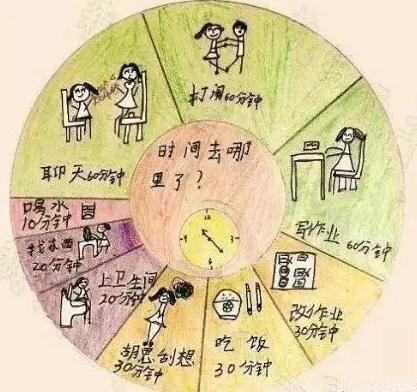 时间去哪
里了?
打闹60分钟
写作业 60分钟
改作业
30分钟
吃饭
30分钟
胡思乱想
30分钟
上卫生间
20分钟
找东西
20分钟
喝水
10分钟
聊天60分钟
12
3
6
9